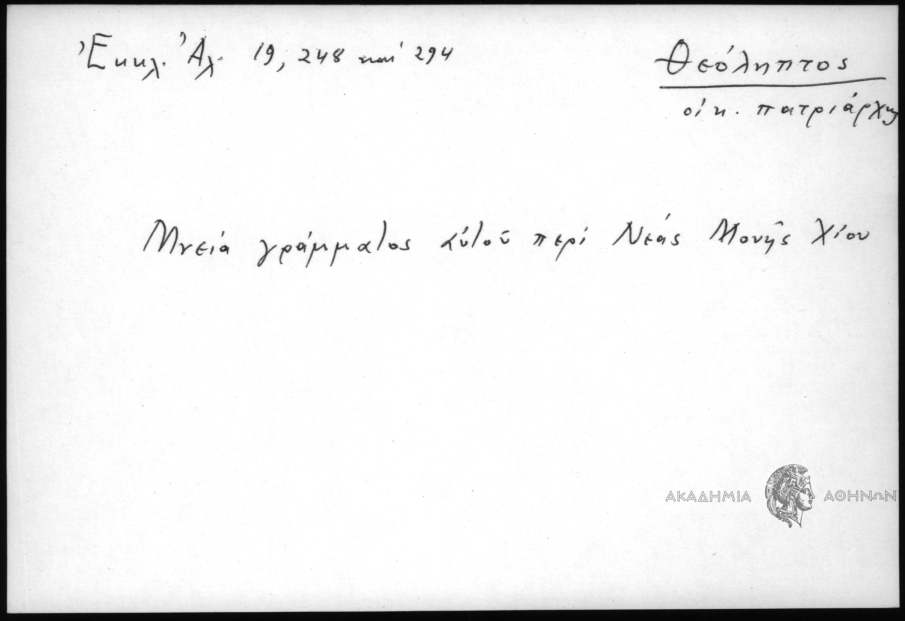 Ἐκκλ. Ἀλ. 19, 248 καί 294
Θεόληπτος
οἰκ. πατριάρχης
Μνεία γράμματος αὐτοῦ περί Νεάς Μονῆς Χίου
ΑΚΑΔΗΜΙΑ ΑΘΗΝΩΝ